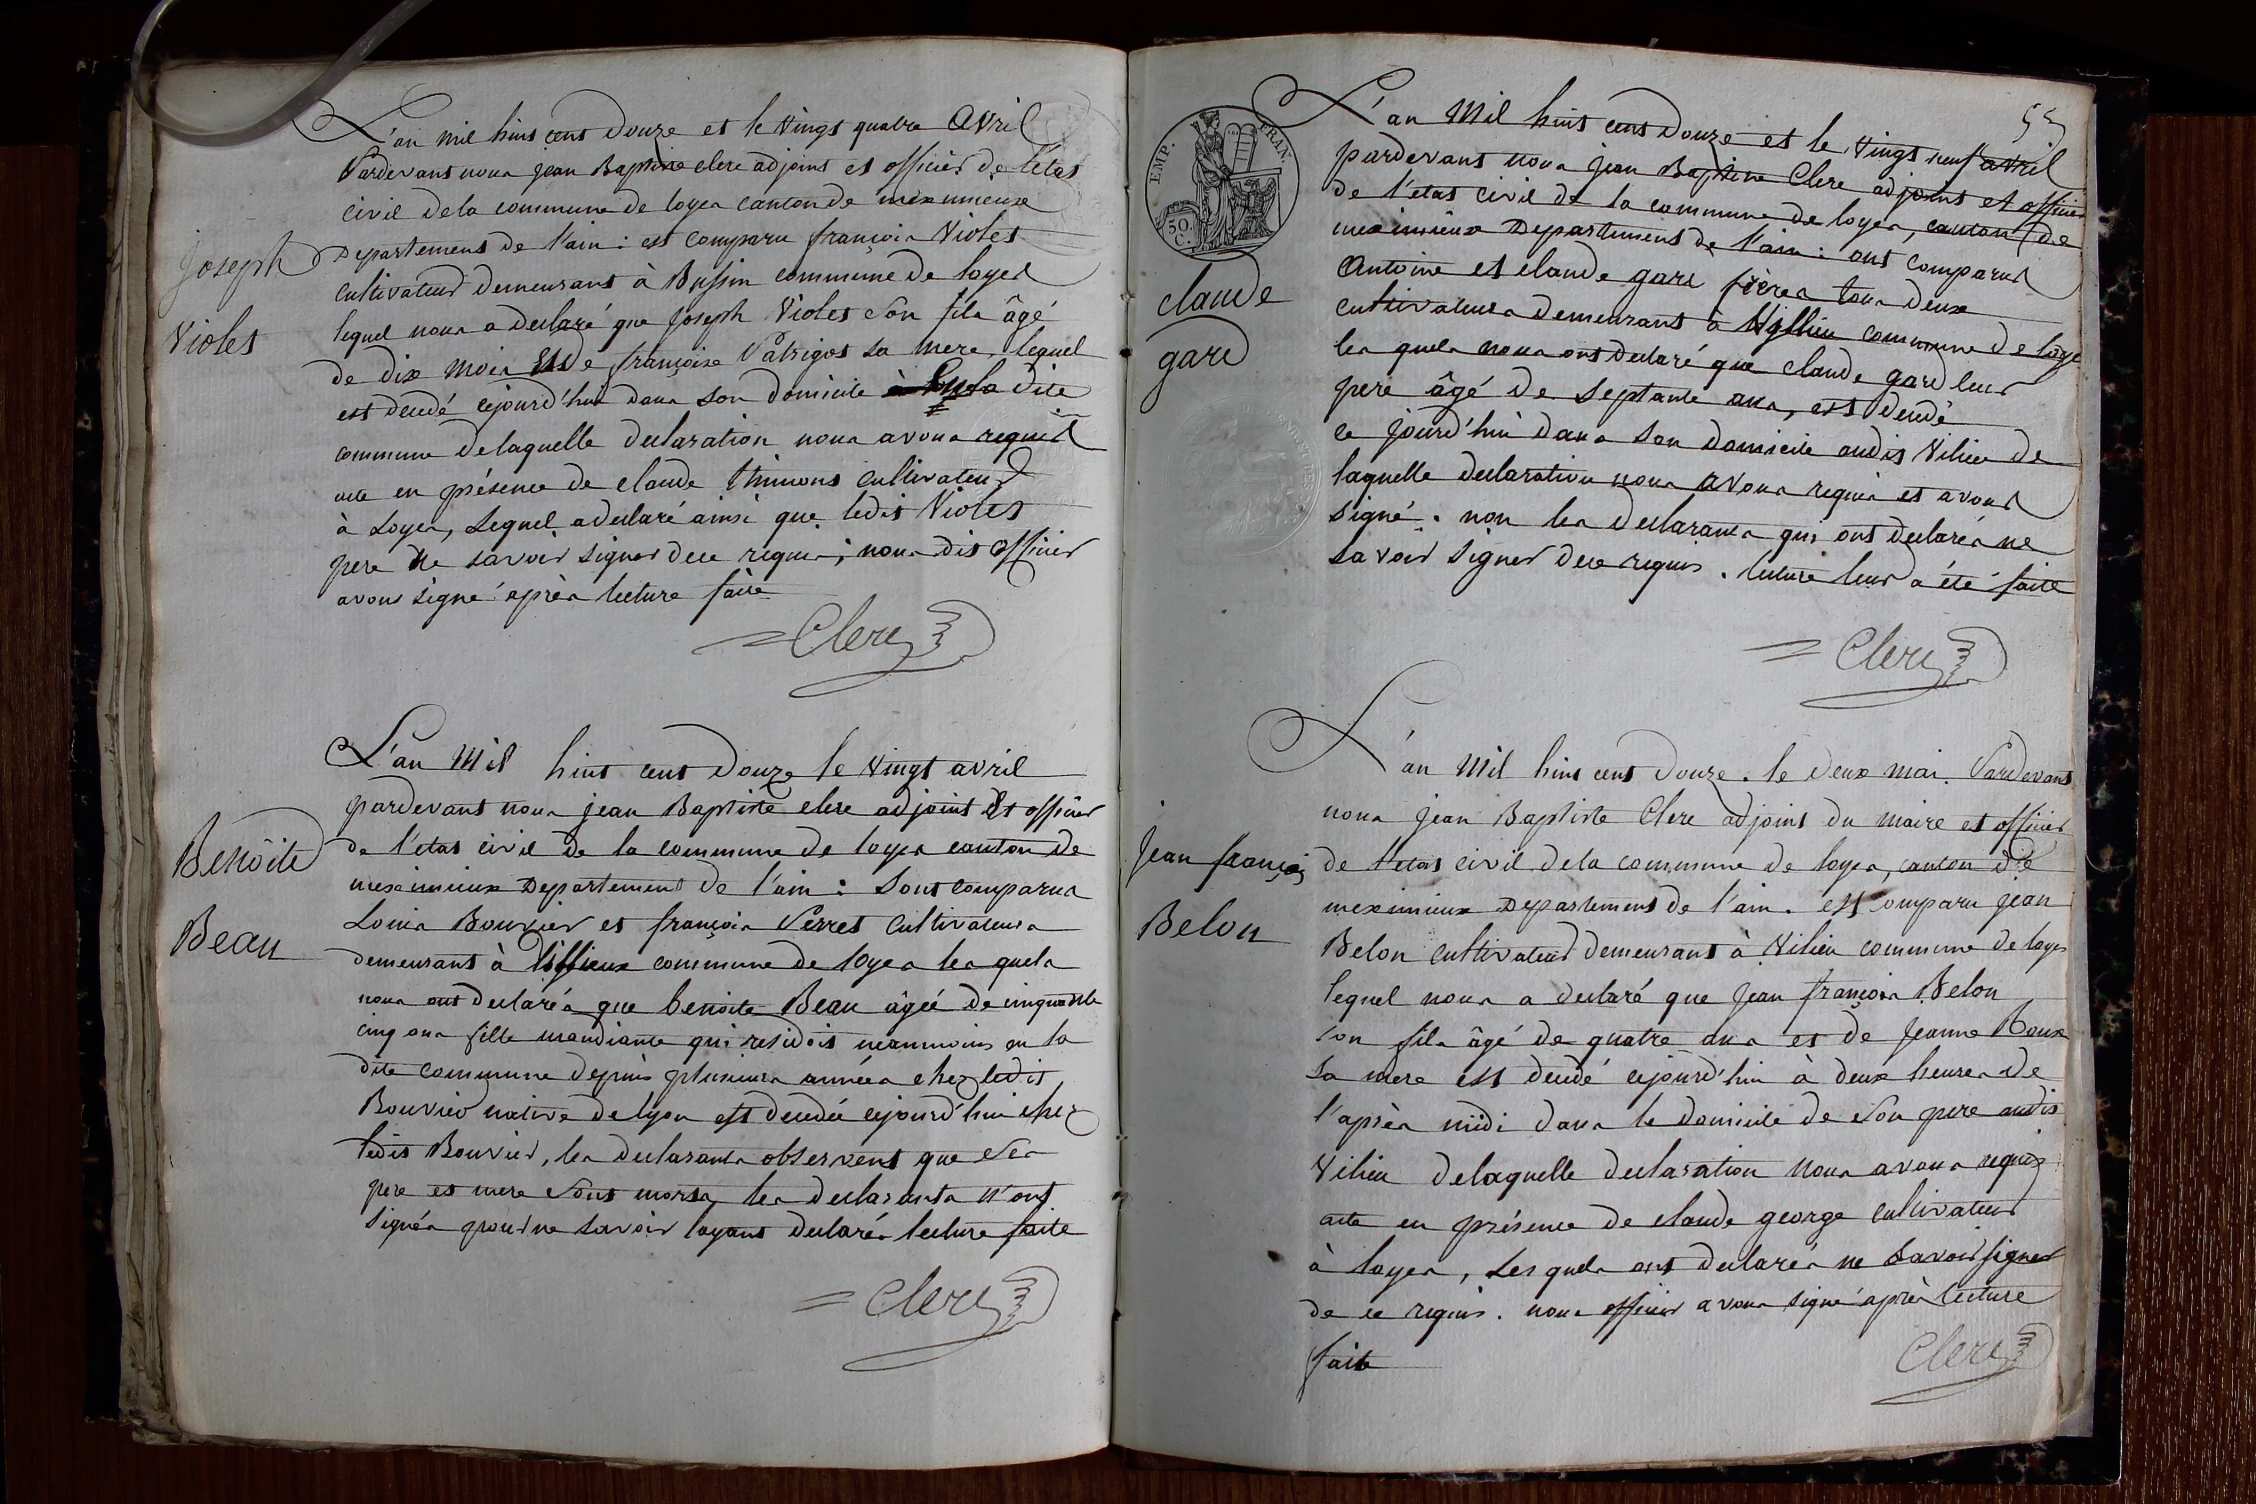 Joseph
Violet
L'an mil huit cent Douze et le Vingt quatre Avril
Pardevant nous jean Baptiste clerc adjoint et officier de l'état
civil dela commune de loyes canton de meximieux
Departement de l'ain : est comparu françois Violet
cultivateur demeurant à Bussin commune de loyes
lequel nous a declaré que Joseph Violet son fils âgé
de dix mois et de françoise Patrigot sa mere, lequel
est decedé cejourd'hui dans son domicile à la dite
commune delaquelle declaration nous avons requis
acte en présence de claude thimont cultivateur
à Loyes, Lequel a declaré ainsi que ledit Violet
pere Ne savoir signer dece requis ; nous dit officier
avons signé après lecture faite
Clerc
Benôite
Beau
L'an Mil huit cent Douze le vingt avril
pardevant nous jean Baptiste clerc adjoint Et officier
de l'etat civil de la commune de loyes canton de
meximieux Departement de l'ain : sont comparus
Louis Bouvier et françois Perret cultivateurs
demeurant à commune de loyes les quels
nous ont declarés que benoite Beau âgée de cinquante
cinq ans fille mandiante qui residoit neanmoins en la
dite commune depuis plusieurs années chez ledit
Bouvier native de lyon est decedée cejourd'hui chez
ledit Bouvier, les declarants observent que ses
pere et mere sont morts, les declarants n'ont
signés pour ne savoir layant declarés lecture faite
Clerc
55
EMP. FRAN.
50 C.
claude
gard
L'an Mil huit cent Douze et le Vingt neuf avril
pardevant nous jean Baptiste Clerc adjoint et officier
de l'etat civil de la commune de loyes, canton de
meximieux Departement de l'ain : ont comparus
Antoine et claude gard frères tous deux
cultivateurs demeurant à Villieu commune de loye
les quels nous ont declaré que claude gard leur
pere âgé de septante ans, est decedé
ce jourd'hui dans son domicile audit Vilieu de
laquelle declaration nous avons requis et avons
signé . non les declarants qui ont declarés ne
savoir signer dece requis . lecture leur a été faite
Clerc
jean françois
Belon
L'an Mil huit cent Douze . le deux mai . Pardevant
nous jean Baptiste Clerc adjoint du maire et officier
de l'etat civil dela commune de loyes, canton de
meximieux Departement de l'ain . est comparu jean
Belon cultivateur demeurant à Vilieu commune de loyes
lequel nous a declaré que jean françois Belon
son fils âgé de quatre ans et de jeanne Roux
sa mere est decedé cejourd'hui à deux heures de
l'après midi dans le domicile de son pere audit
Vilieu delaquelle declaration nous avons requis
acte en présence de claude george cultivateur
à loyes, Les quels ont declarés ne savoir signer
de ce requis . nous officier avons signé après lecture
faite
Clerc